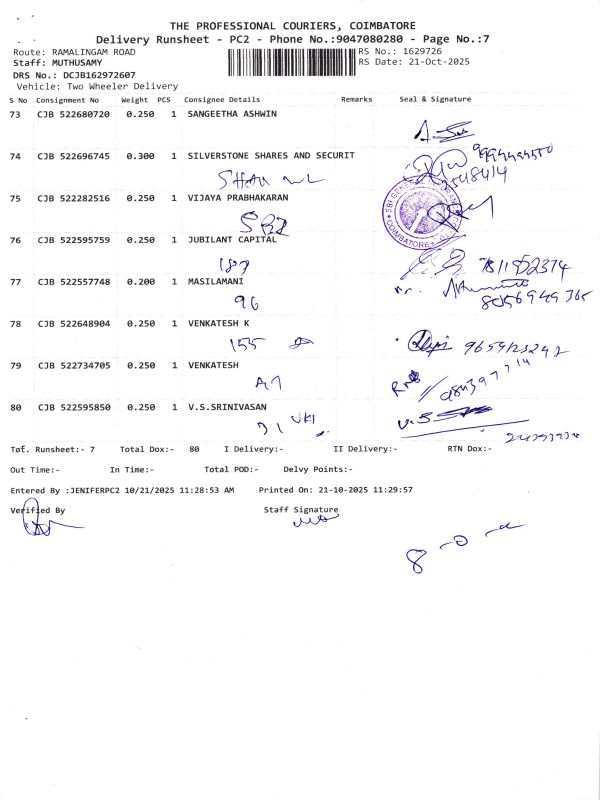 THE PROFESSIONAL COURIERS, COIMBATORE
Delivery Runsheet - PC2 - Phone No.:9047080280 - Page No.:7
Route: RAMALINGAM ROAD RS No.: 1629726
Staff: MUTHUSAMY RS Date: 21-Oct-2025
DRS No.: DCJB162972607
Vehicle: Two Wheeler Delivery
S No Consignment No Weight PCS Consignee Details Remarks Seal & Signature
73 CJB 522680720 0.250 1 SANGEETHA ASHWIN
74 CJB 522696745 0.300 1 SILVERSTONE SHARES AND SECURIT
75 CJB 522282516 0.250 1 VIJAYA PRABHAKARAN
SBI
76 CJB 522595759 0.250 1 JUBILANT CAPITAL
187 7811952374
77 CJB 522557748 0.200 1 MASILAMANI
96 8056949365
78 CJB 522648904 0.250 1 VENKATESH K
155
79 CJB 522734705 0.250 1 VENKATESH
80 CJB 522595850 0.250 1 V.S.SRINIVASAN
V.S
Tot. Runsheet:- 7 Total Dox:- 80 I Delivery:- II Delivery:- RTN Dox:-
Out Time:- In Time:- Total POD:- Delvy Points:-
Entered By :JENIFERPC2 10/21/2025 11:28:53 AM Printed On: 21-10-2025 11:29:57
Verified By Staff Signature